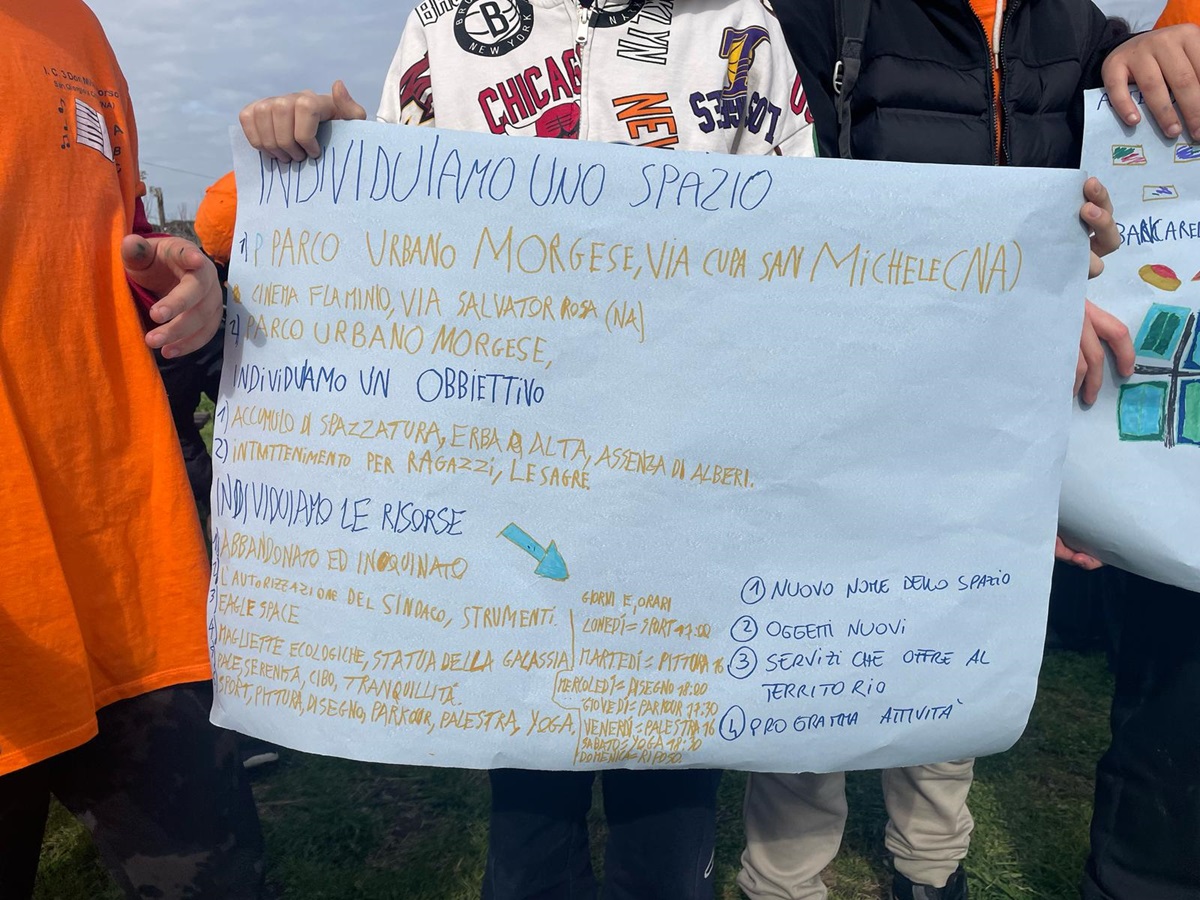 INDIVIDUIAMO UNO SPAZIO
1) P PARCO URBANO MORGESE, VIA CUPA SAN MICHELE (NA)
CINEMA FLAMINIO, VIA SALVATOR ROSA (NA)
2) PARCO URBANO MORGESE,
INDIVIDUAMO UN OBBIETTIVO
1) ACCUMULO DI SPAZZATURA, ERBA ALTA, ASSENZA DI ALBERI.
2) INTRATTENIMENTO PER RAGAZZI, LE SAGRE
INDIVIDUIAMO LE RISORSE
ABBANDONATO ED INQUINATO
2 L'AUTORIZZAZIONE DEL SINDACO, STRUMENTI.
3 EAGLE SPACE
4 MAGLIETTE ECOLOGICHE, STATUA DELLA GALASSIA
PACE, SERENITÀ, CIBO, TRANQUILLITÁ.
SPORT, PITTURA, DISEGNO, PARKOUR, PALESTRA, YOGA.
GIORNI E, ORARI
LONEDÌ = SPORT 17:00
MARTEDÌ = PITTURA 16
MERCOLEDÌ = DISEGNO 18:00
GIOVEDÌ = PARKOUR 17.30
VENERDÌ = PALESTRA 16
SABATO = YOGA 18:30
DOMENICA = RIPOSO.
1 NUOVO NOME DELLO SPAZIO
2 OGGETTI NUOVI
3 SERVIZI CHE OFFRE AL
TERRITORIO
4 PROGRAMMA ATTIVITÀ
BANCAREL
B
NEW YORK
CHICAG
NEW
LOS
I.C. 3 Don
(NA)